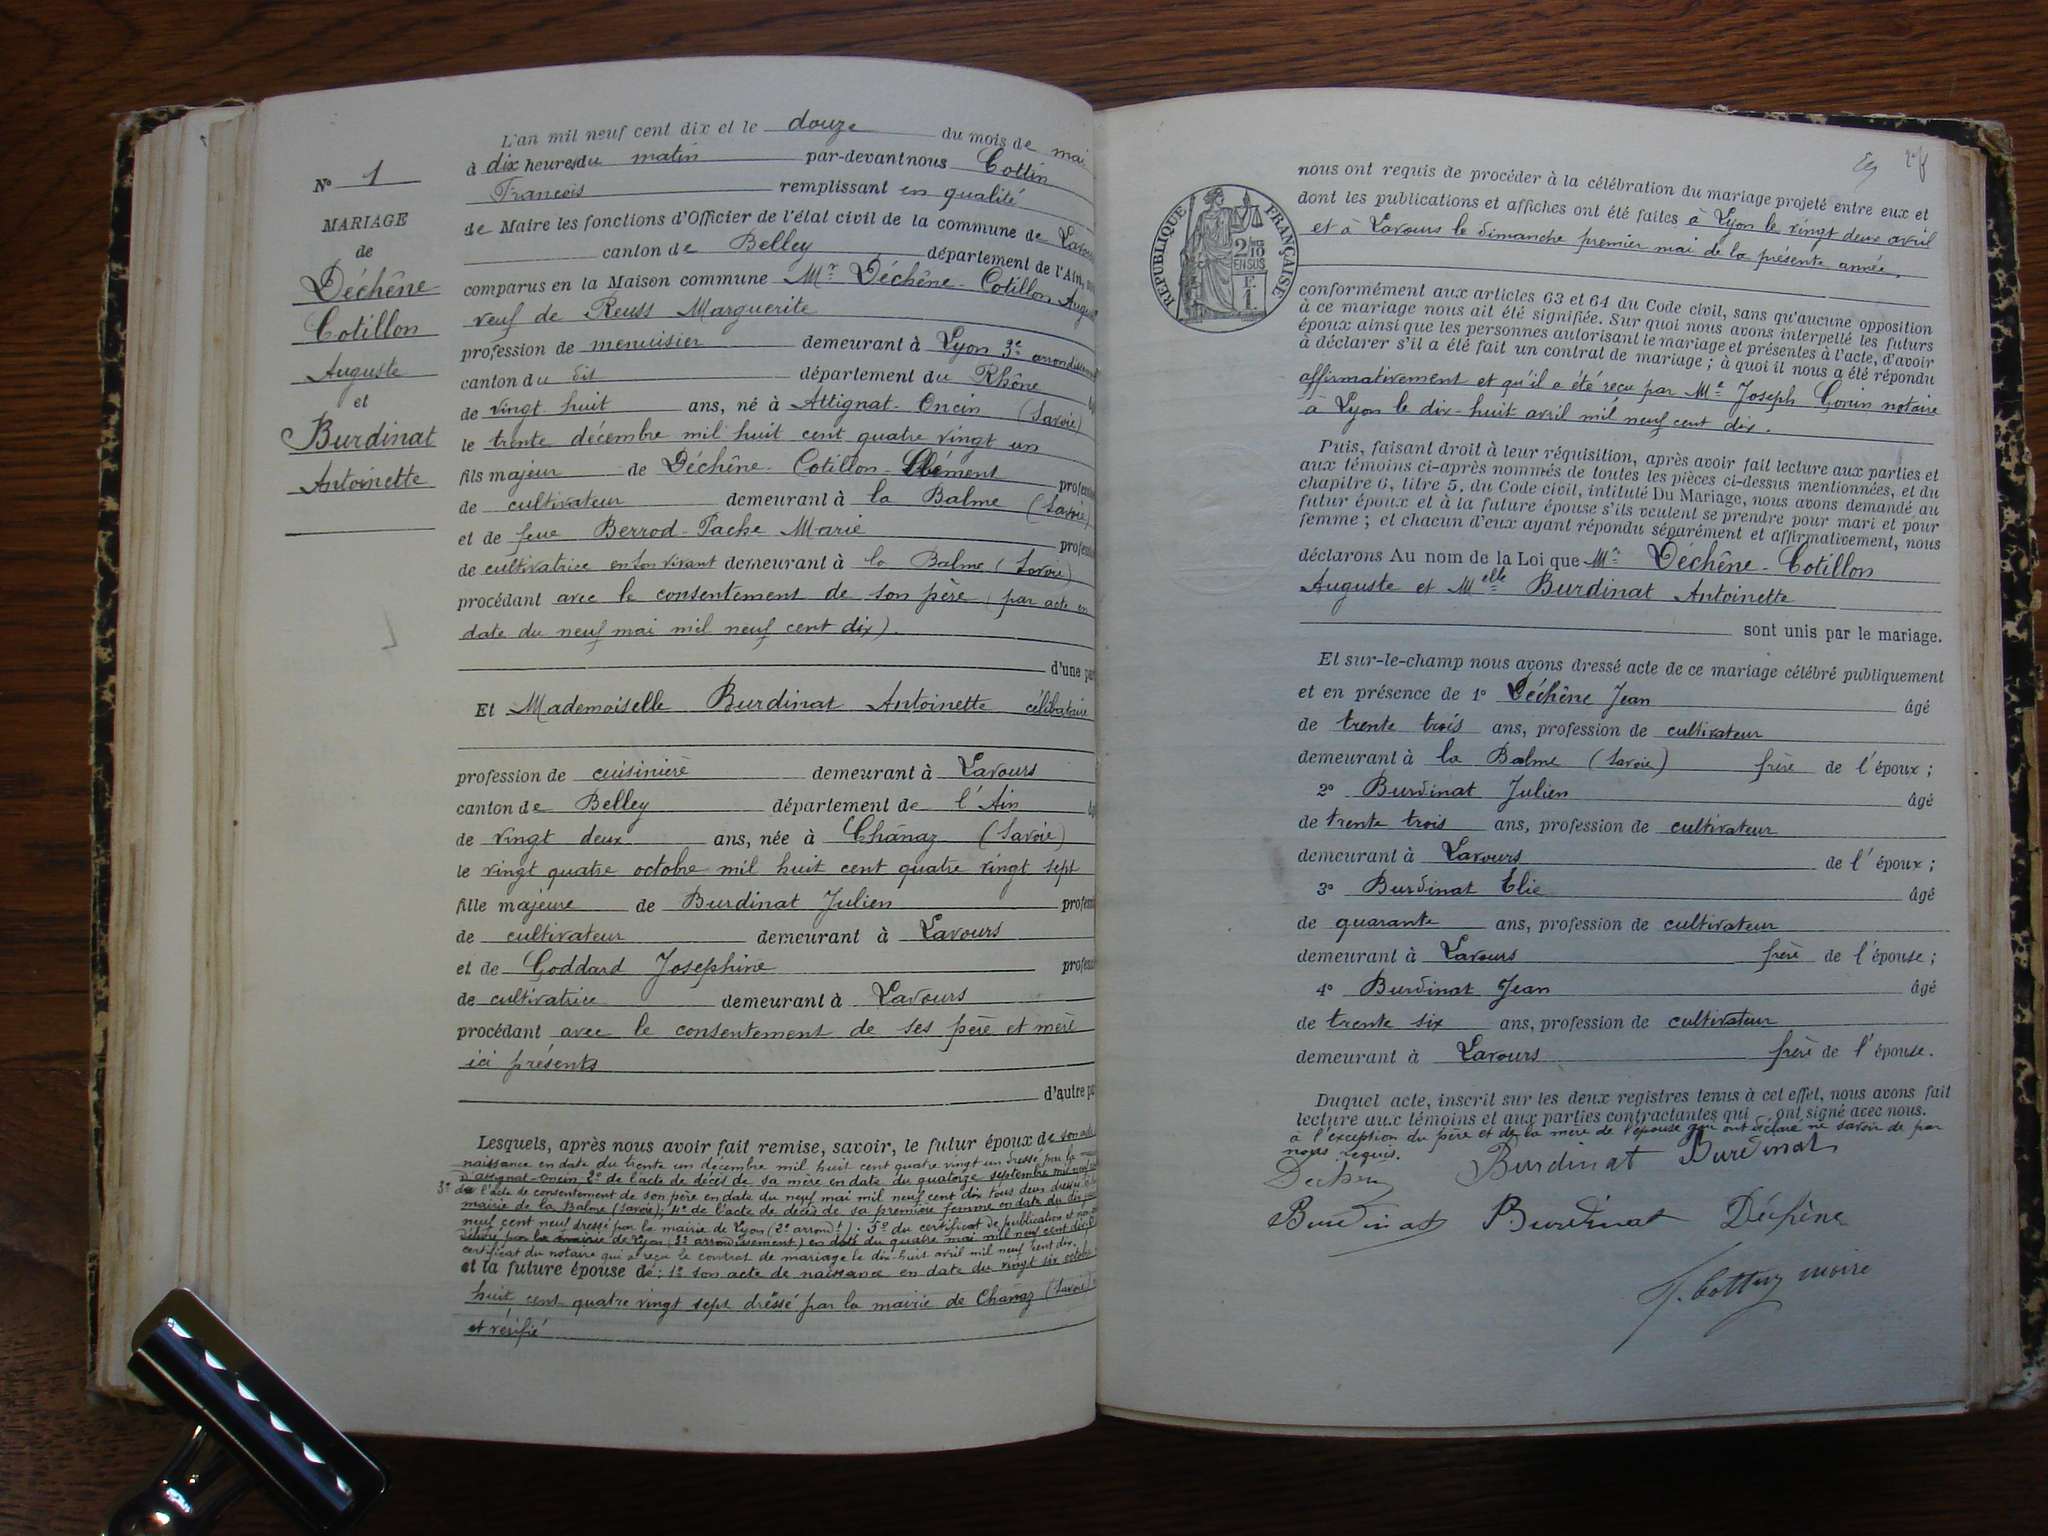 N° 1
MARIAGE
de
Déchêne
Cotillon
Auguste
et
Burdinat
Antoinette
L'an mil neuf cent dix et le douze du mois de mai
à dix heures du matin par-devant nous Cottin
François remplissant en qualité
de Maire les fonctions d'Officier de l'état civil de la commune de Lavours
canton de Belley département de l'Ain,
comparus en la Maison commune Mr Déchêne-Cotillon Auguste
veuf de Reuss Marguerite
profession de menuisier demeurant à Lyon 3e arrondissement
canton du dit département du Rhône
de vingt huit ans, né à Attignat-Oncin (Savoie)
le trente décembre mil huit cent quatre vingt un
fils majeur de Déchêne-Cotillon-Clément profession
de cultivateur demeurant à la Balme (Savoie)
et de feue Berrod-Pache Marie profession
de cultivatrice en son vivant demeurant à la Balme (Savoie)
procédant avec le consentement de son père (par acte en
date du neuf mai mil neuf cent dix).
d'une part
Et Mademoiselle Burdinat Antoinette célibataire
profession de cuisinière demeurant à Lavours
canton de Belley département de l'Ain
de vingt deux ans, née à Chânaz (Savoie)
le vingt quatre octobre mil huit cent quatre vingt sept
fille majeure de Burdinat Julien profession
de cultivateur demeurant à Lavours
et de Goddard Josephine profession
de cultivatrice demeurant à Lavours
procédant avec le consentement de ses père et mère
ici présents
d'autre part
Lesquels, après nous avoir fait remise, savoir, le futur époux de son acte
naissance en date du trente un décembre mil huit cent quatre vingt un dressé par la
d'attignat-oncin, 2° de l'acte de décès de sa mère en date du quatorze septembre mil neuf
3° de l'acte de consentement de son père en date du neuf mai mil neuf cent dix tous deux dressés
mairie de la Balme (Savoie); 4° de l'acte de décès de sa première femme en date du dix
neuf cent neuf dressé par la mairie de Lyon (2e arrondt); 5° du certificat de publication et
délivré par la mairie de Lyon (3e arrondissement) en date du quatre mai mil neuf cent dix
certificat du notaire qui a reçu le contrat de mariage le dix-huit avril mil neuf cent dix.
et la future épouse de: 1° son acte de naissance en date du vingt six octobre
huit cent quatre vingt sept dressé par la mairie de Chanaz (Savoie)
et vérifié
RÉPUBLIQUE FRANÇAISE
2/10
EN SUS
1F.
nous ont requis de procéder à la célébration du mariage projeté entre eux et
dont les publications et affiches ont été faites à Lyon le vingt deux avril
et à Lavours le dimanche premier mai de la présente année.
conformément aux articles 63 et 64 du Code civil, sans qu'aucune opposition
à ce mariage nous ait été signifiée. Sur quoi nous avons interpellé les futurs
époux ainsi que les personnes autorisant le mariage et présentes à l'acte, d'avoir
à déclarer s'il a été fait un contrat de mariage; à quoi il nous a été répondu
affirmativement et qu'il a été reçu par Me Joseph Gorin notaire
à Lyon le dix-huit avril mil neuf cent dix.
Puis, faisant droit à leur réquisition, après avoir fait lecture aux parties et
aux témoins ci-après nommés de toutes les pièces ci-dessus mentionnées, et du
chapitre 6, titre 5, du Code civil, intitulé Du Mariage, nous avons demandé au
futur époux et à la future épouse s'ils veulent se prendre pour mari et pour
femme; et chacun d'eux ayant répondu séparément et affirmativement, nous
déclarons Au nom de la Loi que Mr Déchêne-Cotillon
Auguste et Melle Burdinat Antoinette
sont unis par le mariage.
Et sur-le-champ nous avons dressé acte de ce mariage célébré publiquement
et en présence de 1° Déchêne Jean âgé
de trente trois ans, profession de cultivateur
demeurant à la Balme (Savoie) frère de l'époux;
2° Burdinat Julien âgé
de trente trois ans, profession de cultivateur
demeurant à Lavours de l'époux;
3° Burdinat Elie âgé
de quarante ans, profession de cultivateur
demeurant à Lavours frère de l'épouse;
4° Burdinat Jean âgé
de trente six ans, profession de cultivateur
demeurant à Lavours frère de l'épouse.
Duquel acte, inscrit sur les deux registres tenus à cet effet, nous avons fait
lecture aux témoins et aux parties contractantes qui ont signé avec nous.
à l'exception du père et de la mère de l'épouse qui ont déclaré ne savoir de par
nous requis.
Burdinat Burdinat
Burdinat Burdinat Déchêne
F. Cottin maire